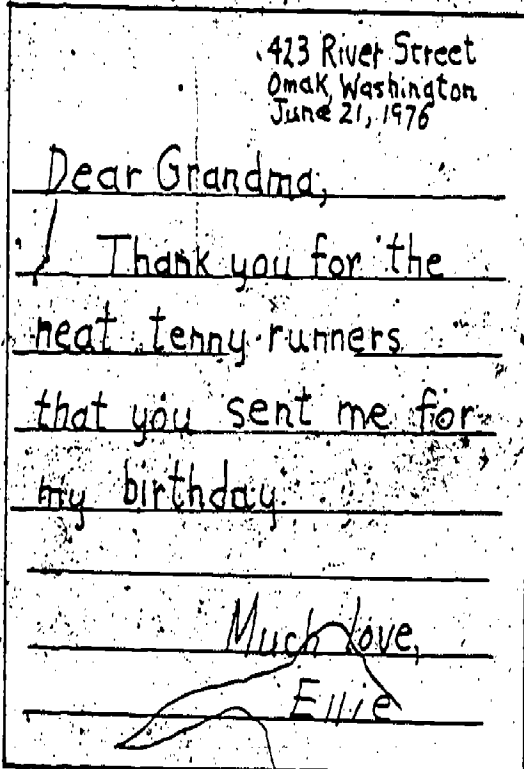 423 River Street
Omak, Washington
June 21, 1976
Dear Grandma,
Thank you for the
neat tenny runners
that you sent me for
my birthday.
Much love,
Ellie